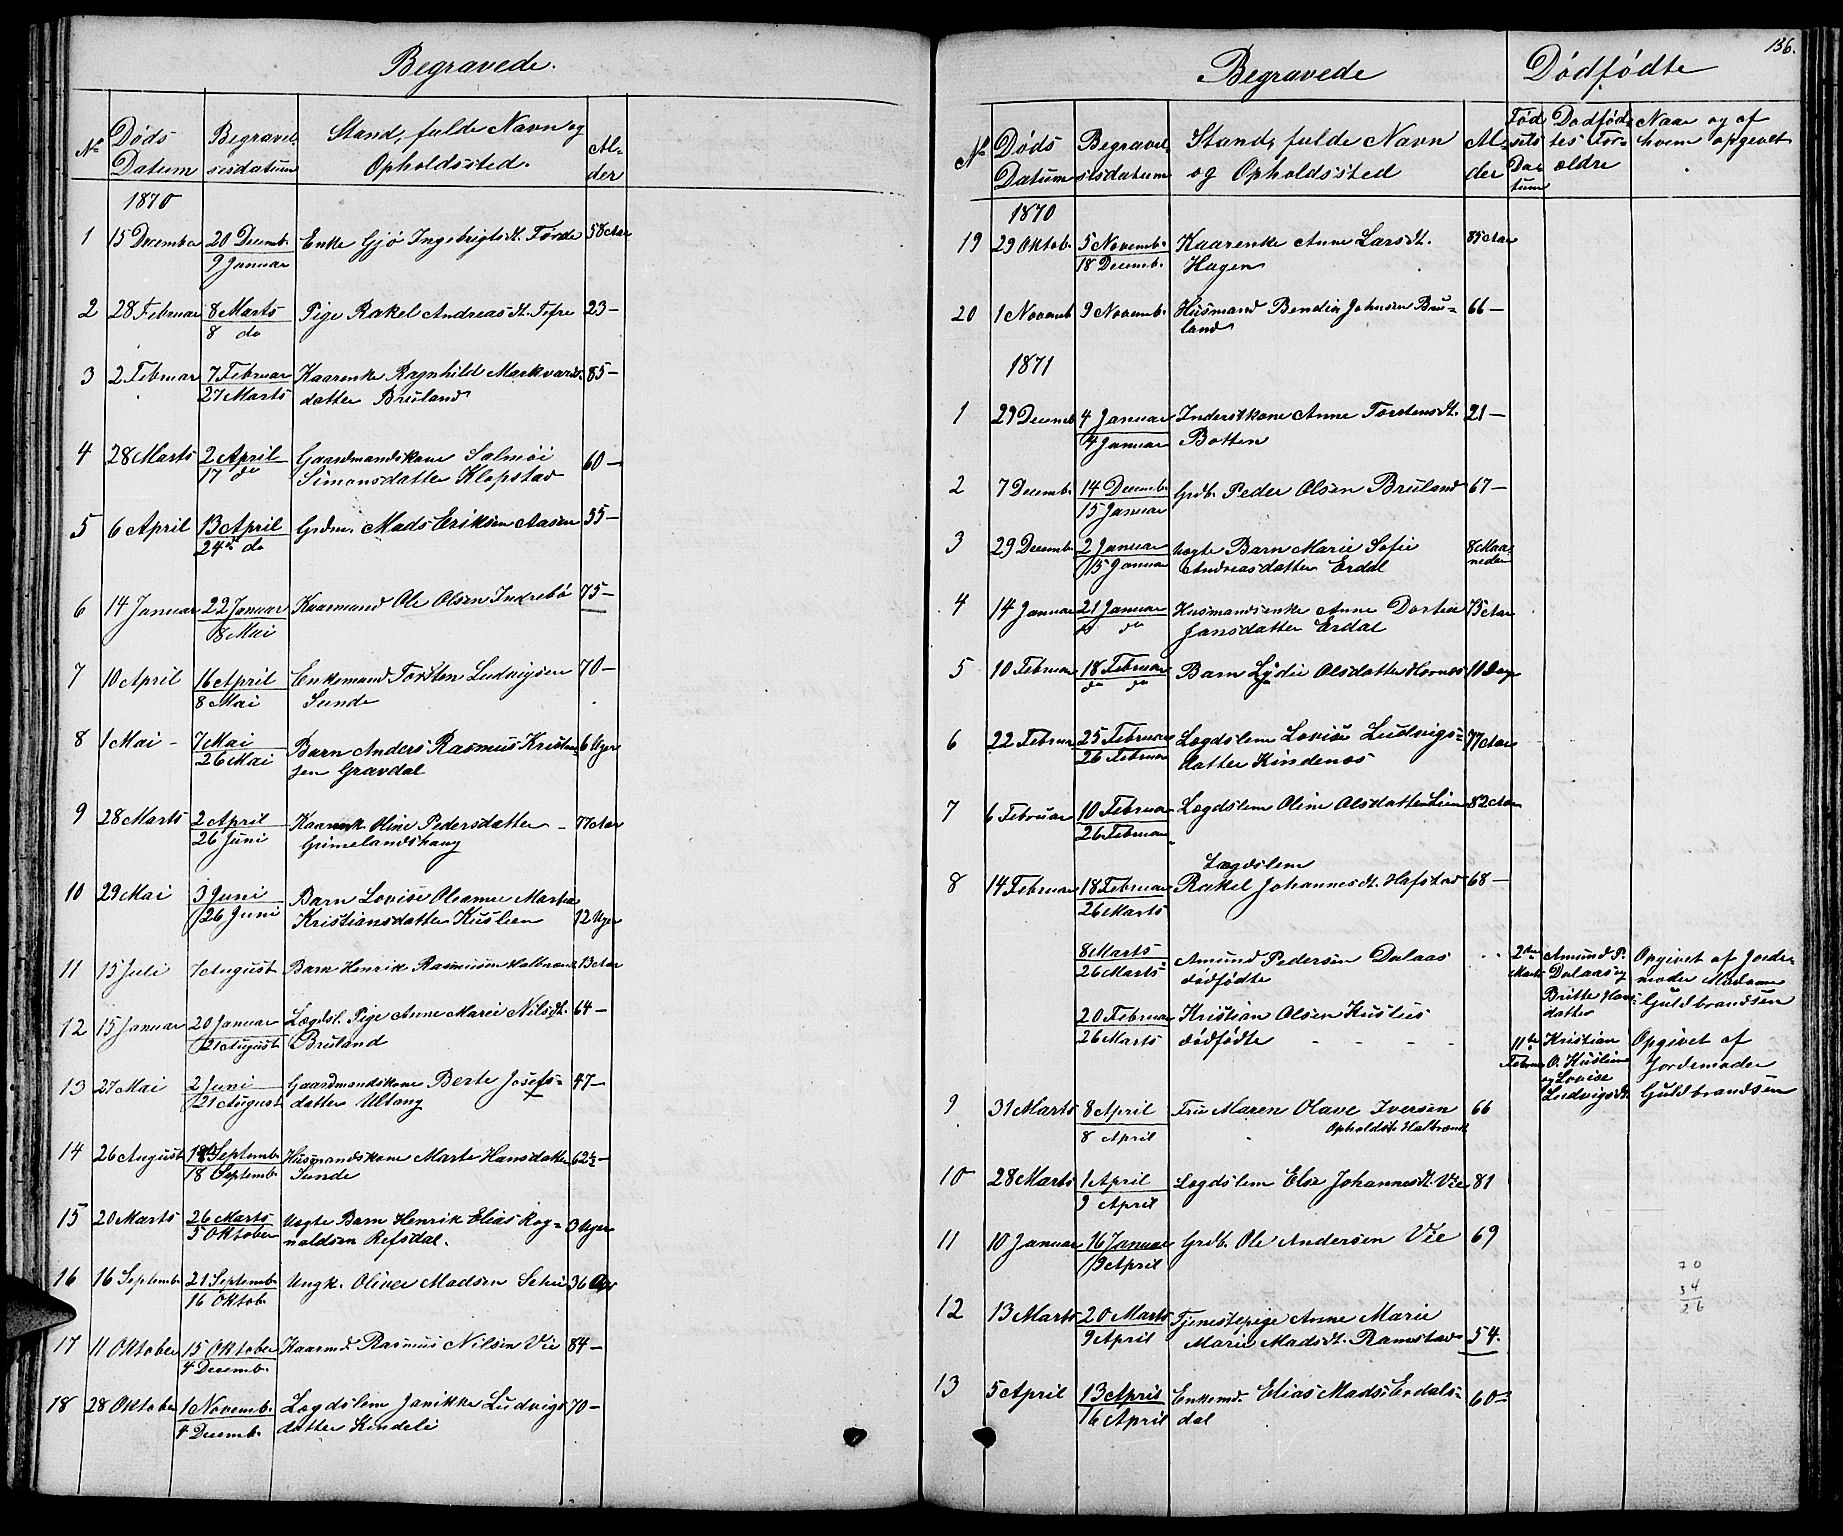 Begravede.
No Døds Datum Begravelsesdatum Stand, fulde Navn og Opholdssted. Alder
1870
1 15 December 20 Decemb. Enke Gjø Ingebrigtsdt. Førde 58 Aar
9 Januar
2 28 Februar 8 Marts Pige Rakel Andreasdt. Tefre 23 —
8 do
3 2 Februar 7 Februar Kaarenke Ragnhild Markvards- 85 —
27 Marts datter Bruland
4 28 Marts 2 April Gaardmandskone Salmøi 60 —
17 do Simonsdatter Klopstad
5 6 April 13 April Grdm. Mads Eriksen Aasen 55 —
24de do
6 14 Januar 22 Januar Kaarmand Ole Olsen Indrebø 75 —
8 Mai
7 10 April 16 April Enkemand Torsten Ludvigsen 70 —
8 Mai Sunde
8 1 Mai - 7 Mai Barn Anders Rasmus Kristen- 6 Uger
26 Mai sen Gravdal
9 28 Marts 2 April Kaarenk. Oline Pedersdatter - 77 Aar
26 Juni Grimelandshaug
10 29 Mai 3 Juni Barn Lovise Oleanne Martha
26 Juni Kristiansdatter Kuslien 12 Uger
11 15 Juli 7 August Barn Henrik Rasmussen Halbrænd 13 Aar
12 15 Januar 20 Januar Lægdsl. Pige Anne Marie Nilsdt. 64 —
21 August Bruland
13 27 Mai 2 Juni Gaardmandskone Berte Josefs- 47 —
21 August datter Ultang
14 26 August Septemb. Husmandskone Marte Hansdatter 62½ —
18 Septemb. Sunde
15 20 Marts 26 Marts Uægte Barn Henrik Elias Rag- 3 Uger
5 Oktober naldsen Refsdal.
16 16 Septemb. 21 Septemb. Ungk. Oliver Madsen 36
16 Oktob.
17 11 Oktober 15 Oktober Kaarmd. Rasmus Nilsen Vie 84 —
4 Decemb.
18 28 Oktober 1 Novemb. Lægdslem Janikke Ludvigs- 70 —
4 Decemb. datter Kindeli
136.
Begravede Dødfødte
No Døds Datum Begravelsesdatum Stand, fulde Navn og Opholdssted Alder Fødselsdatum Dødfødtes Forældre Naar og af hvem opgevet
1870
19 29 Oktob. 5 Novemb. Kaarenke Anne Larsdt. 85 Aar
18 Decemb. Hagen
20 1 Novemb. 9 Novemb. Husmand Bendix Johnsen Bru- 66 —
land
1871
1 29 Decemb. 4 Januar Inderstkone Anne Torstensdt. 21 —
4 Januar Botten
2 7 Decemb. 14 Decemb. Grdb. Peder Olsen Bruland 67 —
15 Januar
3 29 Decemb. 2 Januar Uægte Barn Marie Sofie 8 Maa-
15 Januar Andreasdatter Erdal neder
4 14 Januar 21 Januar Husmandsenke Anne Dortea 75 Aar
do do Jansdatter Erdal
5 10 Februar 18 Februar Barn Lydie Olsdatter Hornes 10 Dage
do do
6 22 Februar 25 Februar Lægdslem Lovise Ludvigs- 77 Aar
26 Februar datter Kindenes
7 6 Februar 10 Februar Lægdslem Oline Olsdatter Lien 82 Aar
26 Februar
Lægdslem
8 14 Februar 18 Februar Rakel Johannesdt. Hafstad 68 —
26 Marts
8 Marts Amund Pedersen Dalaas 2den Marts Amund P. Opgivet af Jorde-
26 Marts dødfødte Dalaas og moder Madame
Britte Hans- Guldbrandsen
datter
20 Februar Kristian Olsen Kuslies 11te Februar Kristian Opgivet af
26 Marts dødfødte - - - - O. Kuslien Jordemoder
og Lovise Guldbrandsen
Ludvigsdt.
9 31 Marts 8 April Fru Maren Olave Iversen 66
8 April Opholdst. Halbrænd
10 28 Marts 1 April Lægdslem Elsa Johannesdt. Vie 81
9 April
11 10 Januar 16 Januar Grdb. Ole Andersen Vie 69
9 April
12 13 Marts 20 Marts Tjenestepige Anne Marie
9 April Marie Madsdt. Ramstad 54.
13 5 April 13 April Enkemd. Elias Mads Erdals- 60 —
16 April dal
70
34
26